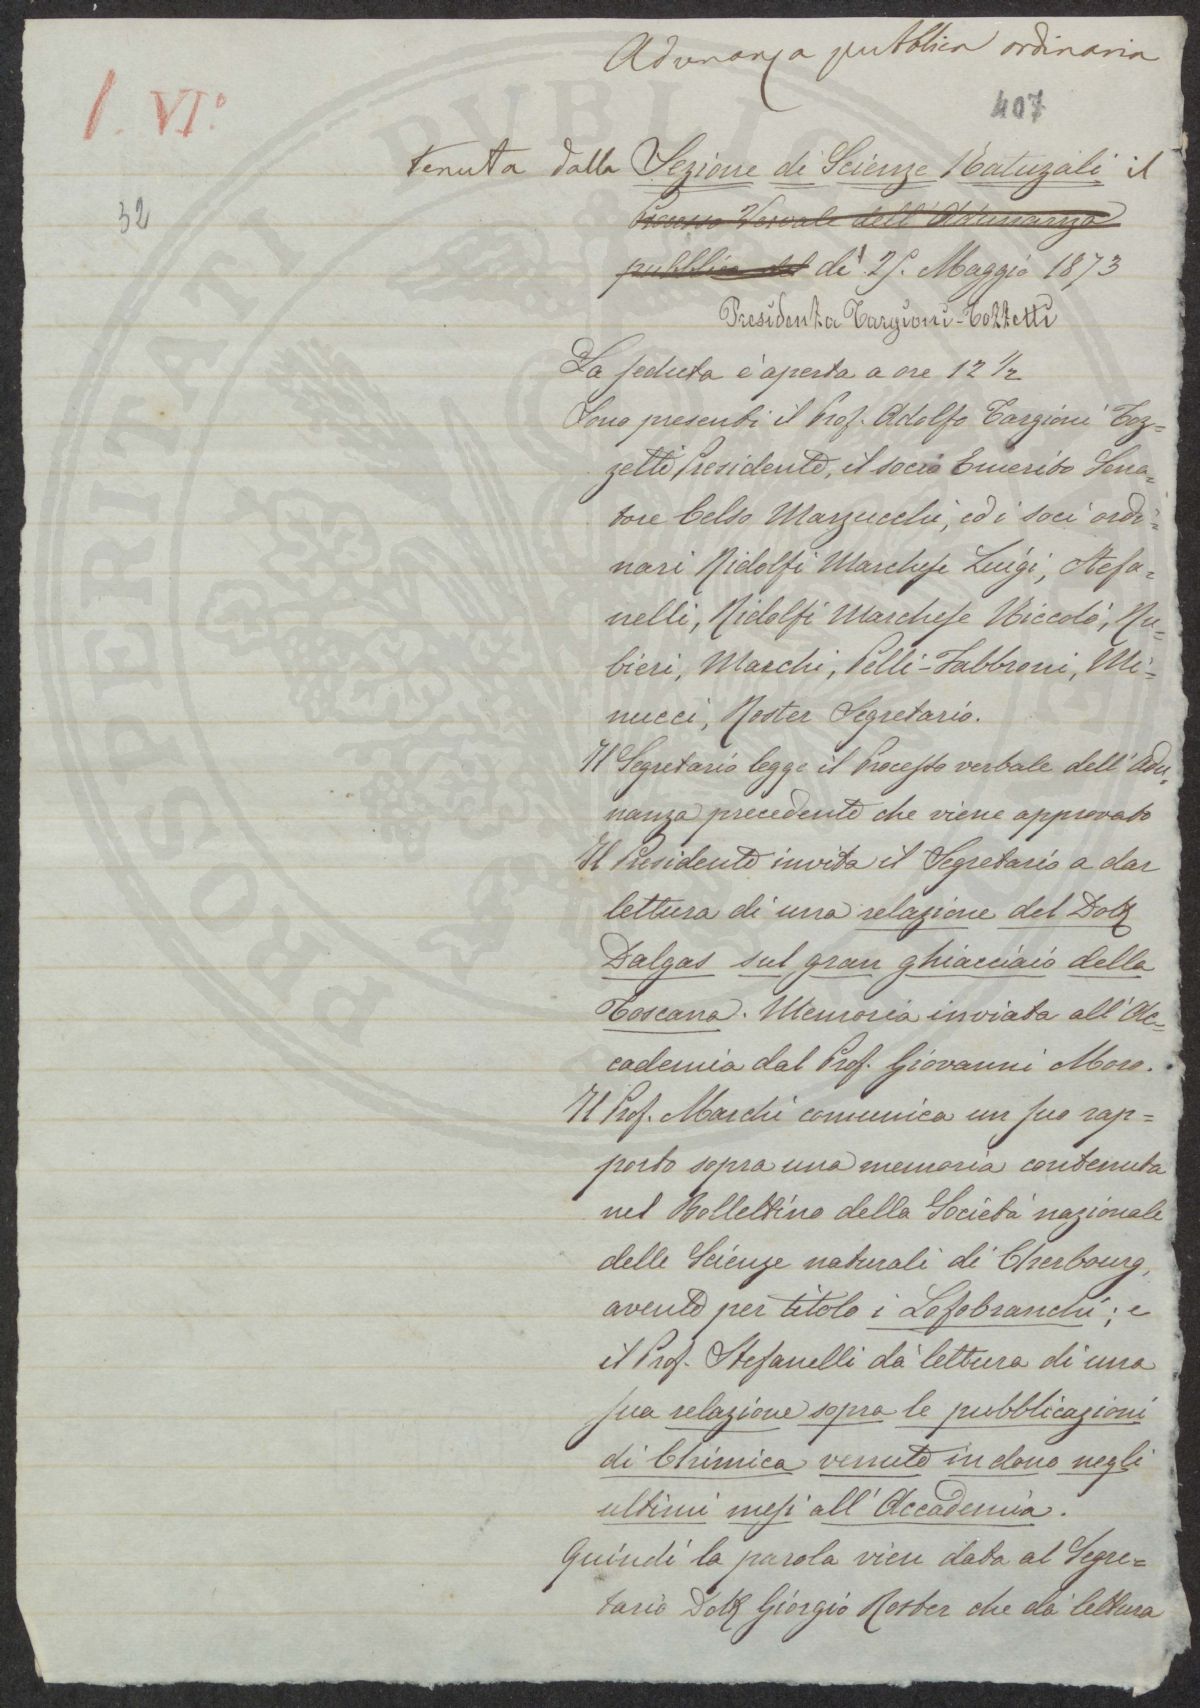 Adunanza pubblica ordinaria
I. VI.°
407
tenuta dalla Sezione di Scienze Naturali il
32
Processo Verbale dell'Adunanza
pubblica del dì 25. Maggio 1873
Presidenza Targioni-Tozzetti
La seduta è aperta a ore 12 1/2
Sono presenti il Prof. Adolfo Targioni Toz=
zetti Presidente, il socio Emerito Sena=
tore Celso Marzucchi, ed i soci ordi=
nari Ridolfi Marchese Luigi, Stefa=
nelli, Ridolfi Marchese Niccolò, Ru=
bieri, Marchi, Pelli-Fabbroni, Mi=
nucci, Roster Segretario.
Il Segretario legge il Processo verbale dell'Adu=
nanza precedente che viene approvato
Il Presidente invita il Segretario a dar
lettura di una relazione del Dott
Dalgas sul gran ghiacciaio della
Toscana. Memoria inviata all'Ac=
cademia dal Prof. Giovanni Moro.
Il Prof. Marchi comunica un suo rap=
porto sopra una memoria contenuta
nel Bollettino della Società nazionale
delle Scienze naturali di Cherbourg,
avente per titolo i Lofobranchi; e
il Prof. Stefanelli dà lettura di una
sua relazione sopra le pubblicazioni
di Chimica venute in dono negli
ultimi mesi all'Accademia.
Quindi la parola vien data al Segre=
tario Dott Giorgio Roster che dà lettura